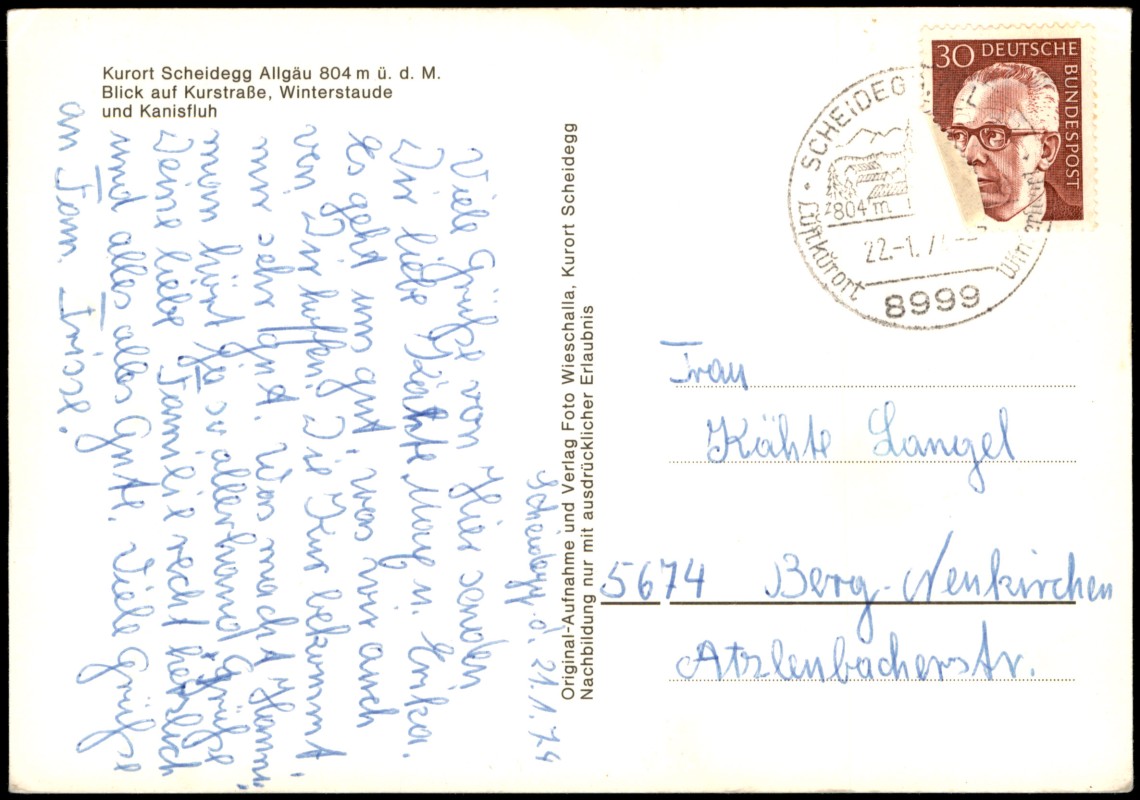 Kurort Scheidegg Allgäu 804 m ü. d. M.
Blick auf Kurstraße, Winterstaude
und Kanisfluh
Scheidegg d. 21.1.74
Viele Grüße von Hier senden
Dir liebe Käthe u. Erika.
Es geht uns gut, was wir auch
von Dir hoffen. Die Kur bekommt
mir sehr gut. Was macht
man hört ja so allerhand Grüße
Deine liebe Familie recht herzlich
und alles alles Gute. Viele Grüße
an Fam.
Original-Aufnahme und Verlag Foto Wieschalla, Kurort Scheidegg
Nachbildung nur mit ausdrücklicher Erlaubnis
30 DEUTSCHE
BUNDESPOST
SCHEIDEGG
804 m
22.-1.74
Luftkurort
8999
Frau
Kähte Langel
5674 Berg-Neukirchen
Atzlenbacherstr.